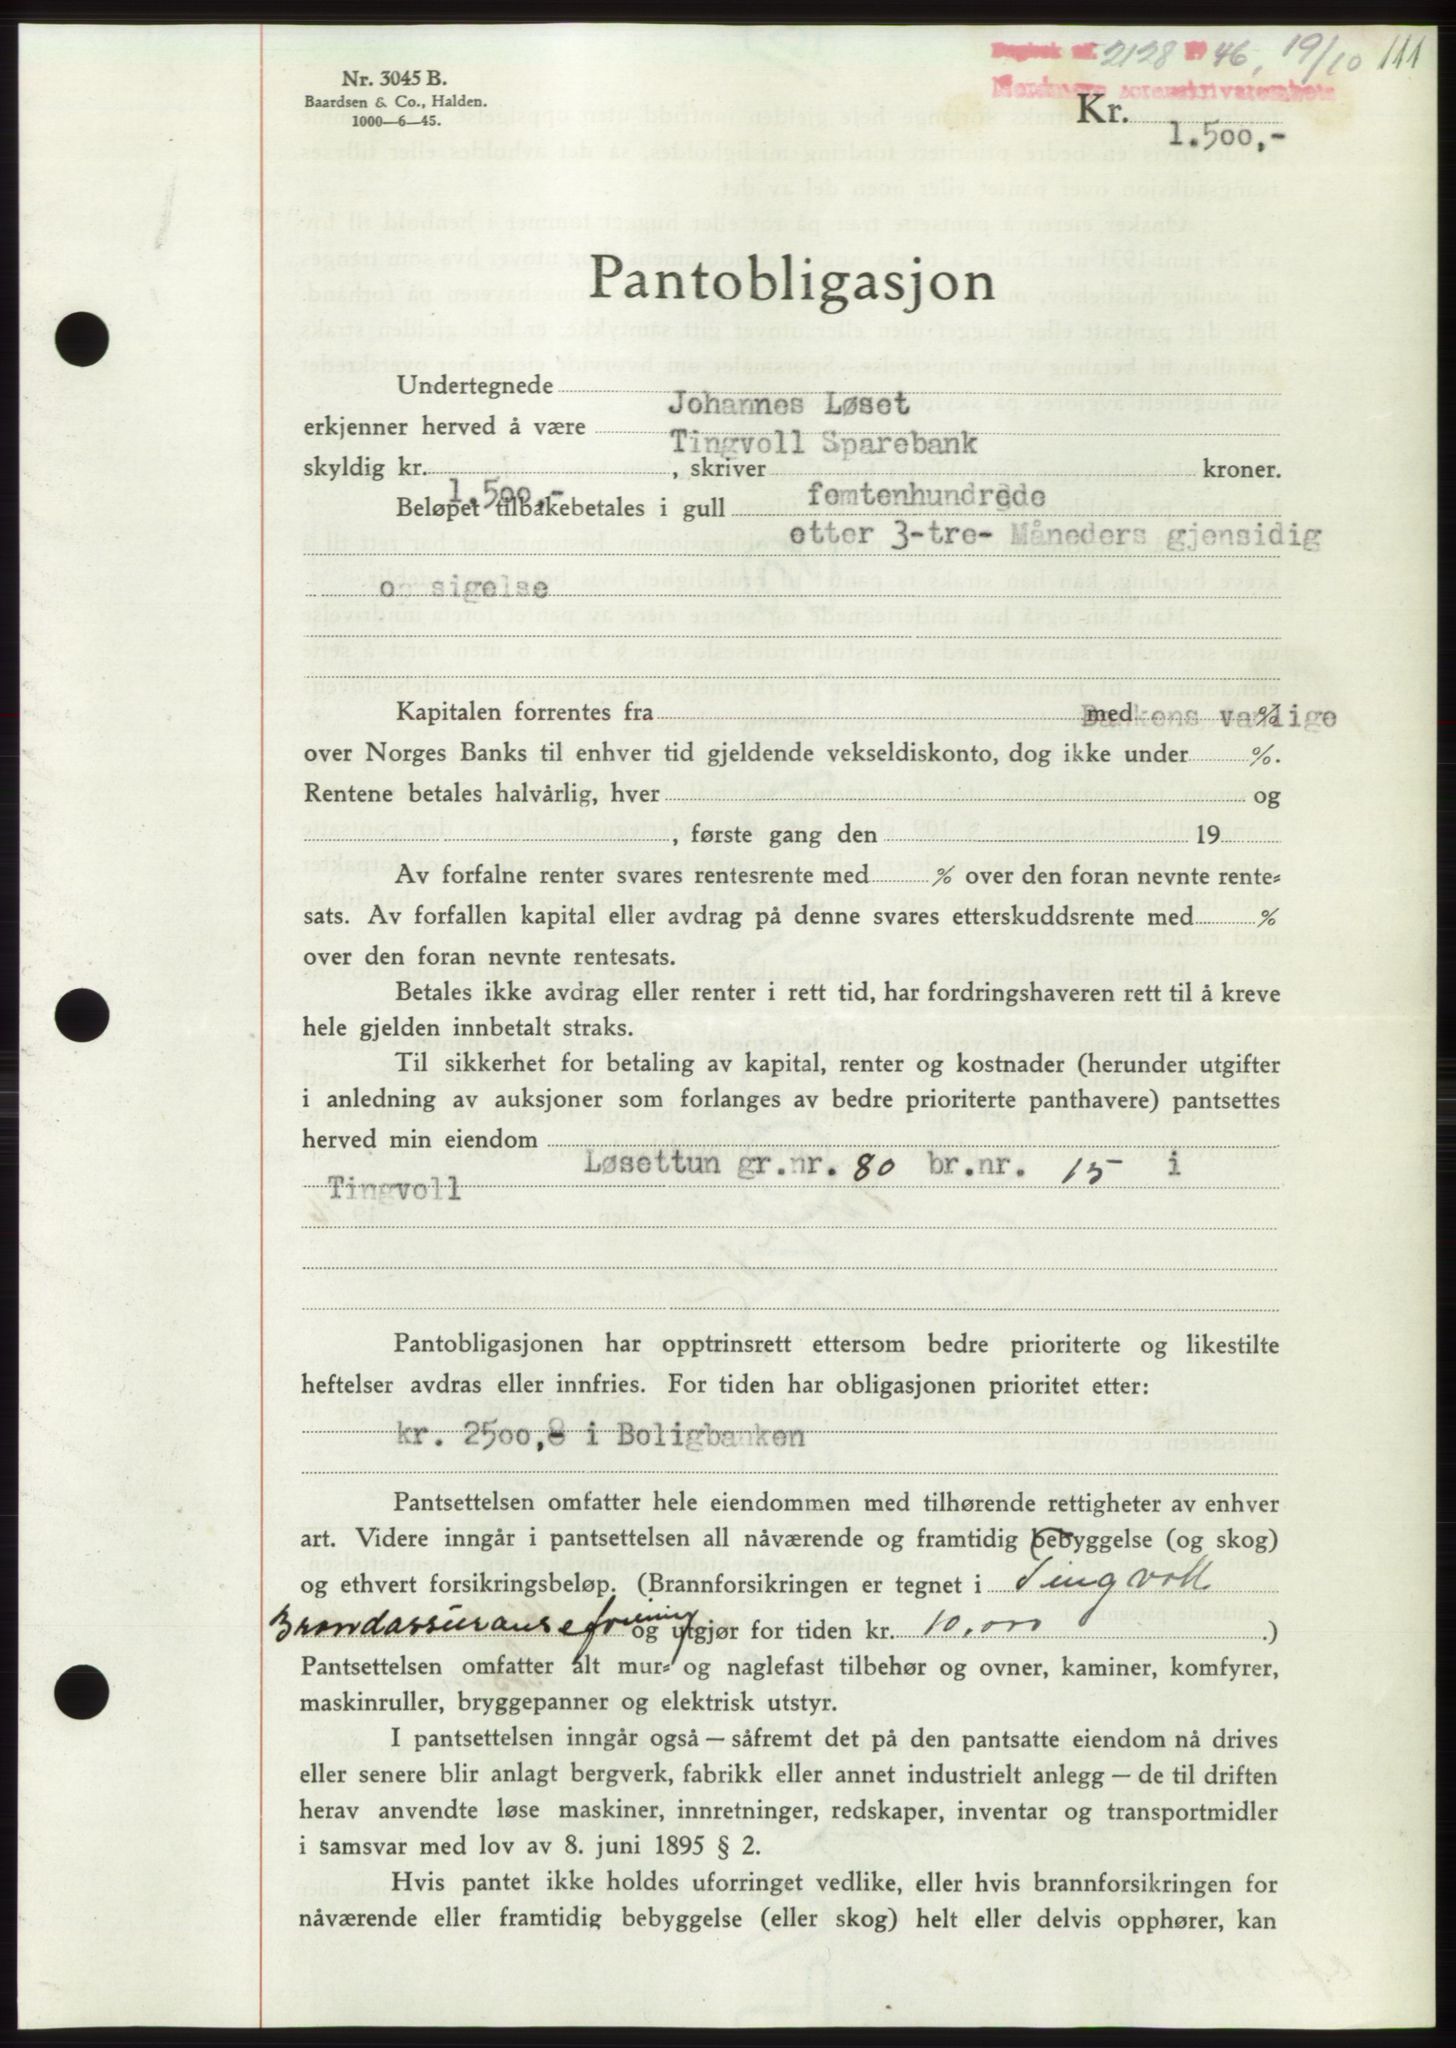 Dagbok nr. 2128 19 46, 19/10 111
Nordmøre sorenskriverembete
Nr. 3045 B.
Baardsen & Co., Halden.
1000—6—45.
Kr.
1.500,-
Pantobligasjon
Undertegnede
Johannes Løset
erkjenner herved å være
Tingvoll Sparebank
skyldig kr. , skriver kroner.
1.500,- femtenhundrede
Beløpet tilbakebetales i gull
etter 3-tre- Måneders gjensidig
op sigelse
Kapitalen forrentes fra med %
Bankens vanlige
over Norges Banks til enhver tid gjeldende vekseldiskonto, dog ikke under %.
Rentene betales halvårlig, hver og
, første gang den 19
Av forfalne renter svares rentesrente med % over den foran nevnte rente-
sats. Av forfallen kapital eller avdrag på denne svares etterskuddsrente med %
over den foran nevnte rentesats.
Betales ikke avdrag eller renter i rett tid, har fordringshaveren rett til å kreve
hele gjelden innbetalt straks.
Til sikkerhet for betaling av kapital, renter og kostnader (herunder utgifter
i anledning av auksjoner som forlanges av bedre prioriterte panthavere) pantsettes
herved min eiendom
Løsettun gr.nr. 80 br.nr. 15 i
Tingvoll
Pantobligasjonen har opptrinsrett ettersom bedre prioriterte og likestilte
heftelser avdras eller innfries. For tiden har obligasjonen prioritet etter:
kr. 2500,- i Boligbanken
Pantsettelsen omfatter hele eiendommen med tilhørende rettigheter av enhver
art. Videre inngår i pantsettelsen all nåværende og framtidig bebyggelse (og skog)
og ethvert forsikringsbeløp. (Brannforsikringen er tegnet i Tingvoll
Brandassuranseforening og utgjør for tiden kr. 10.000 .)
Pantsettelsen omfatter alt mur- og naglefast tilbehør og ovner, kaminer, komfyrer,
maskinruller, bryggepanner og elektrisk utstyr.
I pantsettelsen inngår også — såfremt det på den pantsatte eiendom nå drives
eller senere blir anlagt bergverk, fabrikk eller annet industrielt anlegg — de til driften
herav anvendte løse maskiner, innretninger, redskaper, inventar og transportmidler
i samsvar med lov av 8. juni 1895 § 2.
Hvis pantet ikke holdes uforringet vedlike, eller hvis brannforsikringen for
nåværende eller framtidig bebyggelse (eller skog) helt eller delvis opphører, kan